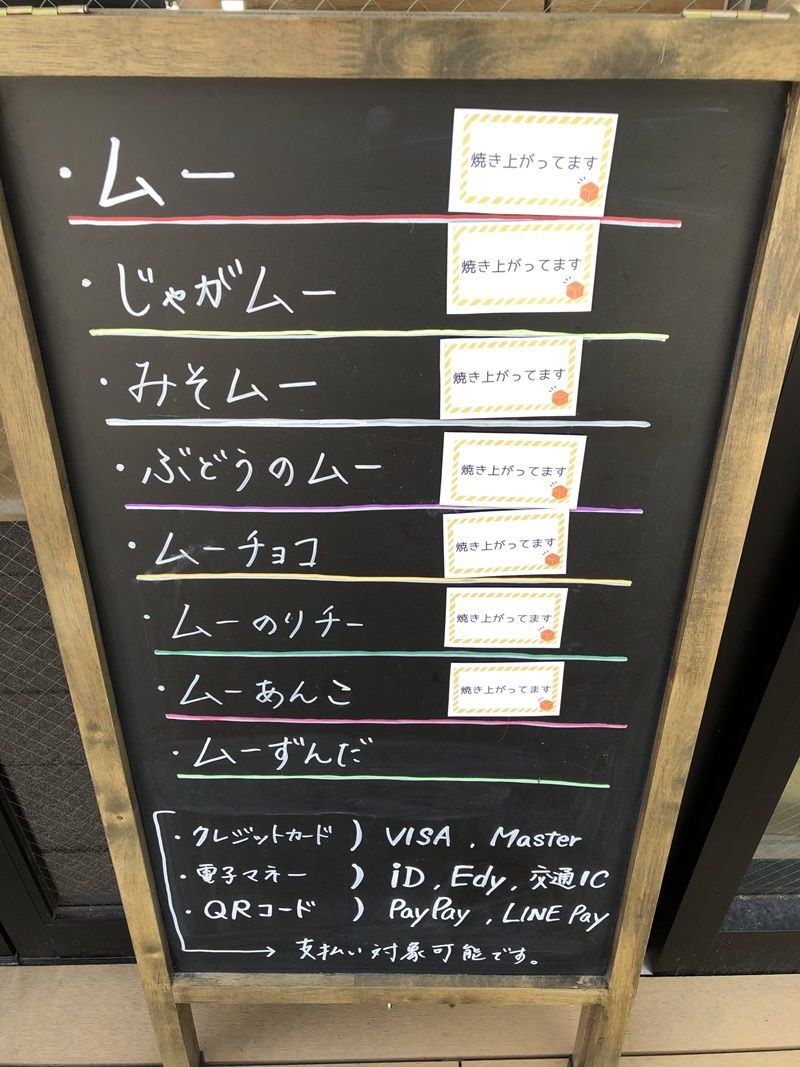 ・ムー 焼き上がってます
・じゃがムー 焼き上がってます
・みそムー 焼き上がってます
・ぶどうのムー 焼き上がってます
・ムーチョコ 焼き上がってます
・ムーのりチー 焼き上がってます
・ムーあんこ 焼き上がってます
・ムーずんだ
・クレジットカード ) VISA , Master
・電子マネー ) iD , Edy , 交通IC
・QRコード ) PayPay , LINE Pay
→ 支払い対象可能です。